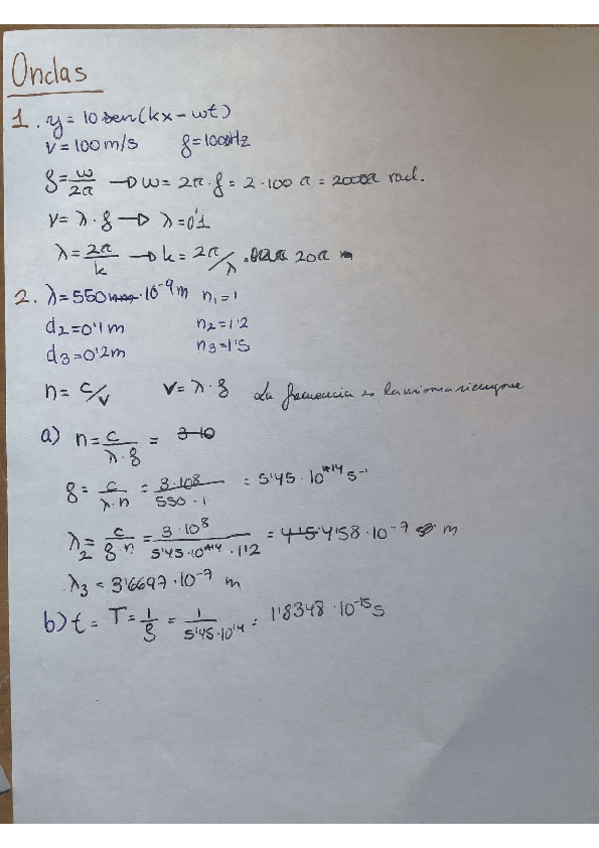 Ondas
1. y = 10 sen(kx - wt)
v = 100 m/s f = 1000Hz
f = w/2π → w = 2π · f = 2 · 100 π = 2000π rad.
v = λ · f → λ = 0'1
λ = 2π/k → k = 2π/λ . 20π m
2. λ = 550 nm · 10⁻⁹ m n₁ = 1
d₂ = 0'1 m n₂ = 1'2
d₃ = 0'2 m n₃ = 1'5
n = c/v v = λ · f La frecuencia es la misma siempre
a) n = c/λ · f = 3·10
f = c/λ·n = 3·10⁸/550·1 = 5'45 · 10¹⁴ s⁻¹
λ₂ = c/f·n = 3·10⁸/5'45·10¹⁴·1'2 = 4'58 · 10⁻⁷ m
λ₃ = 3'6697 · 10⁻⁷ m
b) t = T = 1/f = 1/5'45·10¹⁴ = 1'8348 · 10⁻¹⁵ s